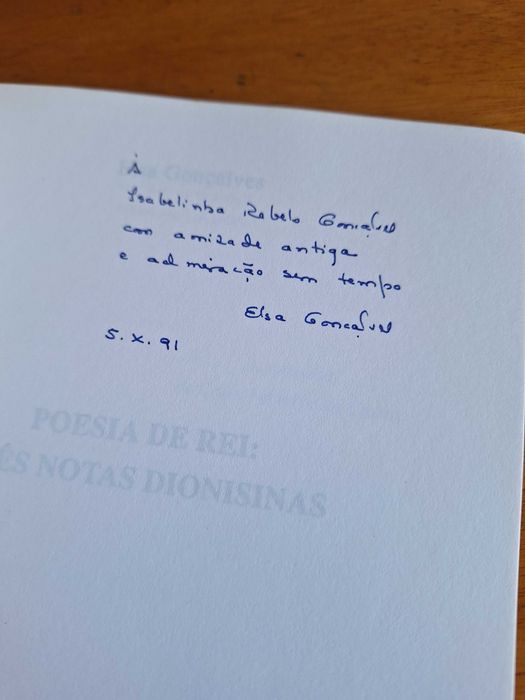 À
Isabelinha Rebelo Gonçalves
com amizade antiga
e admiração sem tempo
Elsa Gonçalves
5.X.91
Elsa Gonçalves
POESIA DE REI:
ÊS NOTAS DIONISINAS